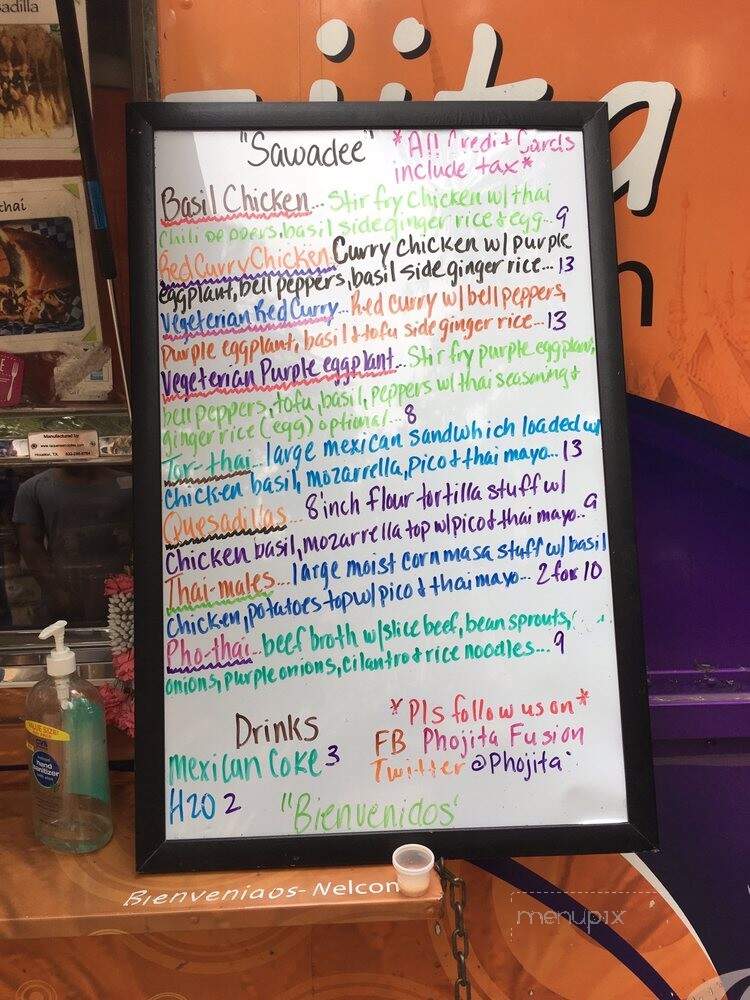 adilla
thai
"Sawadee"
*All Credit Cards
include tax*
Basil Chicken... Stir fry chicken w/ thai
Chili peppers, basil side ginger rice & egg... 9
Red Curry Chicken: Curry chicken w/ purple
eggplant, bell peppers, basil side ginger rice... 13
Vegeterian Red Curry... Red curry w/ bell peppers,
purple eggplant, basil & tofu side ginger rice... 13
Vegeterian Purple eggplant... Stir fry purple eggplant,
bell peppers, tofu, basil, peppers w/ thai seasoning &
ginger rice (egg) optional... 8
Tor-thai... large mexican sandwhich loaded w/
chicken basil, mozarrella, pico & thai mayo... 13
Quesadillas... 8 inch flour tortilla stuff w/
Chicken basil, mozarrella top w/ pico & thai mayo.. 9
Thai-males... large moist corn masa stuff w/ basil
chicken, potatoes top w/ pico & thai mayo... 2 for 10
Pho-thai... beef broth w/ slice beef, bean sprouts,
onions, purple onions, cilantro & rice noodles... 9
Drinks
Mexican Coke 3
H2O 2
*Pls follow us on*
FB Phojita Fusion
Twitter @Phojita
"Bienvenidos"
Manufactured by
Houston, TX
VALUE SIZE!
hand
sanitizer
Bienvenidos- Nelcon
menupix